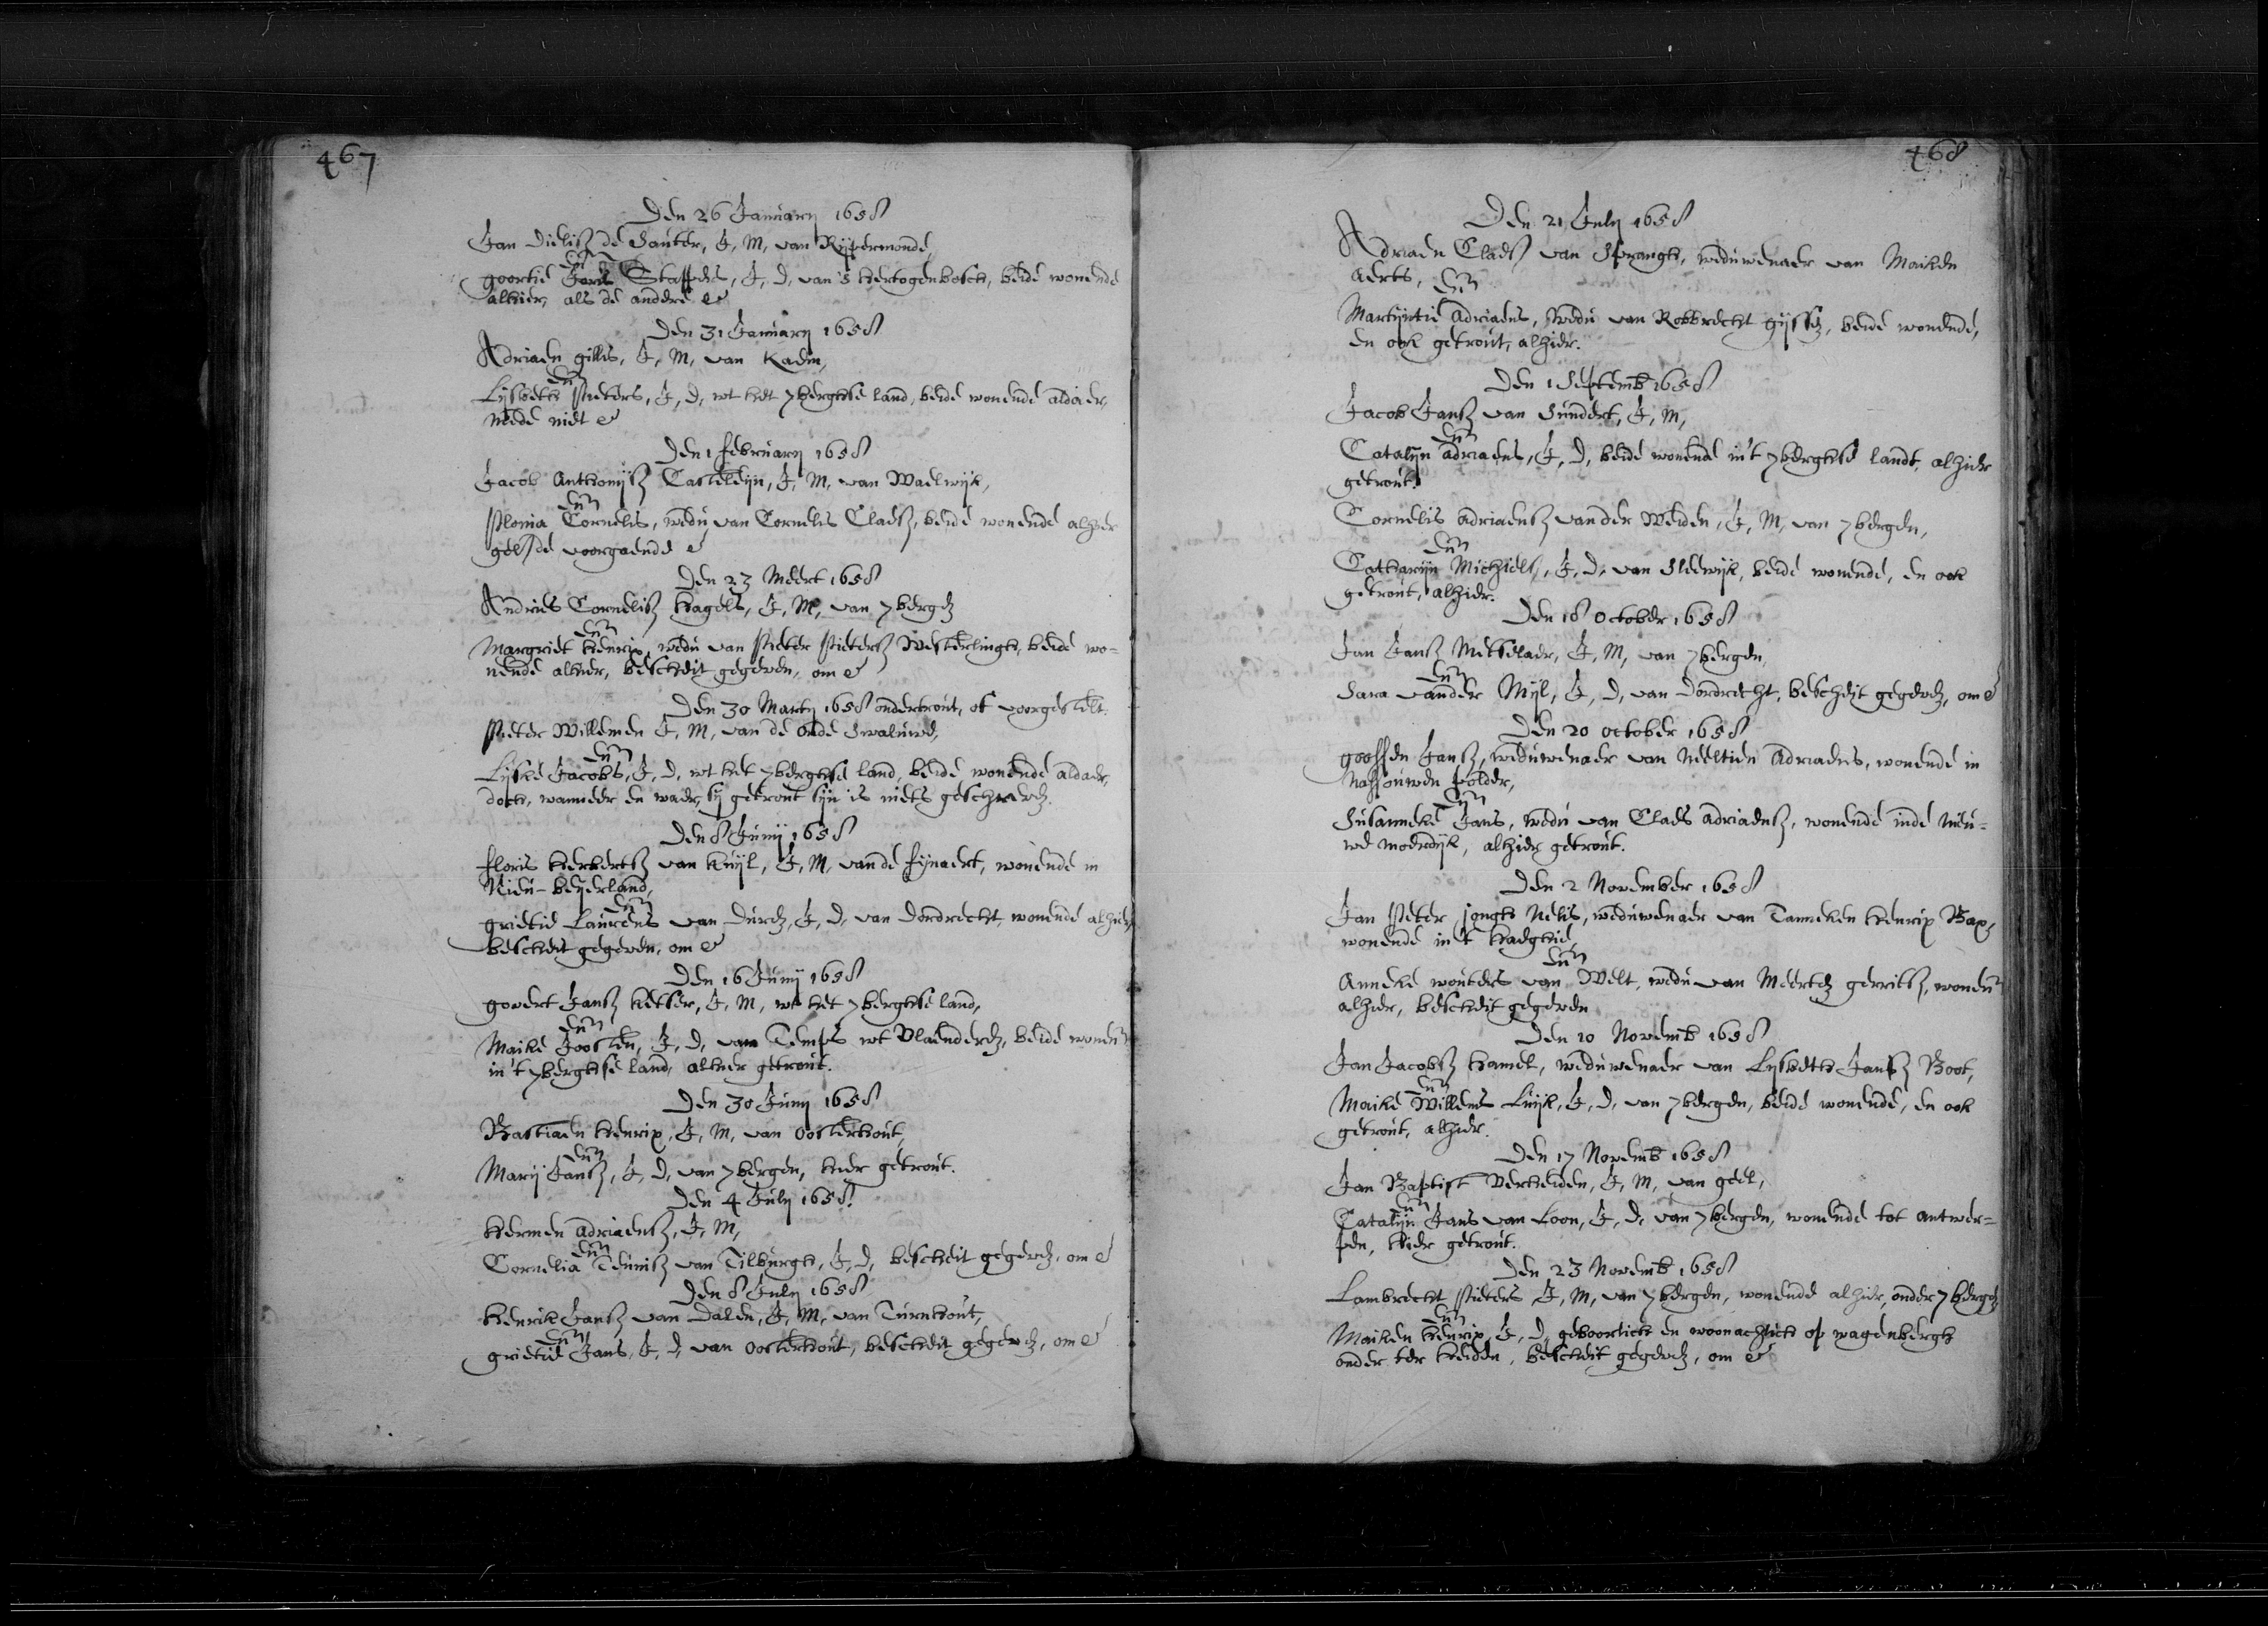 467
Den 26 January 1658
Jan Dielisz de Sauter, J, M, van Rypermonde,
en
goortie Staffes, J, D, van 's Hertogenbosch, beide wonende
alhier, als de andere &
Den 31 January 1658
Adriaen gillis, J, M, van
en
Lysbeth Pieters, J, D, wt het 7berghse land, beide wonende aldaer,
mede niet &
Den 1 february 1658
Jacob Anthonijsz Casteleijn, J, M, van Waelwijk,
en
Plonia Cornelis, wedu van Cornelis Claesz, beide wonende alhier
gel. de voorgaende &
Den 23 Meert 1658
Andries Cornelisz Hagels, J, M, van 7bergen
en
Margriet Henrix, wedu van Pieter Pietersz Westerlingh, beide wo-
nende alhier, bescheit gegeven, om &
Den 30 Marty 1658 ondertrout, of voorgestelt.
Pieter Willemen J, M, van de oude Swaluwe,
en
Lijske Jacobs, J, D, wt het 7berghse land, beide wonende aldaer,
doch, wanneer en waer, sij getrout sijn is niets geschreven.
Den 8 Junij 1658
floris Herbertsz van Kuijl, J, M, van de fijnaert, wonende in
Nieu-beijerland,
en
grietie Laurens van Duren, J, D, van Dordrecht, wonende alhier,
bescheit gegeven, om &
Den 16 Junij 1658
govert Jansz Ketser, J, M, wt het 7berghse land,
en
Maike Joosten, J, D, van Temps wt Vlaenderen, beide wonen
in 't 7berghse land, alhier getrout.
Den 30 Junij 1658
Bastiaen Henrix, J, M, van Oosterhout,
en
Marij Jansz, J, D, van 7bergen, hier getrout.
Den 4 July 1658.
Hermen adriaensz, J, M,
en
Cornelia Teunisz van Tilburgh, J, D, bescheit gegeven, om &
Den 8 July 1658
Henrik Jansz van Dalen, J, M, van Turnhout,
en
grietie Jans, J, D, van Oosterhout, bescheit gegeven, om &
468
Den 21 July 1658
Adriaen Claesz van Sprangh, weduwenaer van Maiken
Aerts,
en
Martijntie Adriaens, wedu van Robbrecht gijssen, beide wonende,
en ook getrout, alhier.
Den 1 Septemb 1658
Jacob Jansz van Sundert, J, M,
en
Catalijn adriaens, J, D, beide wonende in 't 7berghse landt, alhier
getrout.
Cornelis adriaensz van der Weiden, J, M, van 7bergen,
en
Catharijn Michiels, J, D, van Sleewijk, beide wonende, en ook
getrout, alhier.
Den 18 October 1658
Jan Jansz Metselaer, J, M, van 7bergen,
en
Sara vander Mijl, J, D, van Dordrecht, bescheijt gegeven, om &
Den 20 october 1658
goossen Jansz, weduwenaer van Neeltien Adriaens, wonende in
Nassouwen polder,
en
Susanneke Jans, wedu van Claes adriaensz, wonende inde Nieu-
we moerdijk, alhier getrout.
Den 2 November 1658
Jan Peter jongh Nelis, weduwenaer van Tanneken Henrix Bax,
wonende in 't Haeghie,
en
Anneke wouters van Welt, wedu van Meerten gerritsz, wonen
alhier, bescheit gegeven
Den 10 Novemb 1658
Jan Jacobsz Hamel, weduwenaer van Lysbeth Jansz Boot,
en
Maike Willems Luijk, J, D, van 7bergen, beide wonende, en ook
getrout, alhier.
Den 17 Novemb 1658
Jan Baptist Verheiden, J, M, van geel,
en
Catalijn Jans van Loon, J, D, van 7bergen, wonende tot antwer-
pen, hier getrout.
Den 23 Novemb 1658
Lambrecht Pieters J, M, van 7bergen, wonende alhier, onder 7bergen
en
Maiken Henrix, J, D, geboortich en woonachtich op wagenbergh
onder ter Heiden, bescheit gegeven, om &